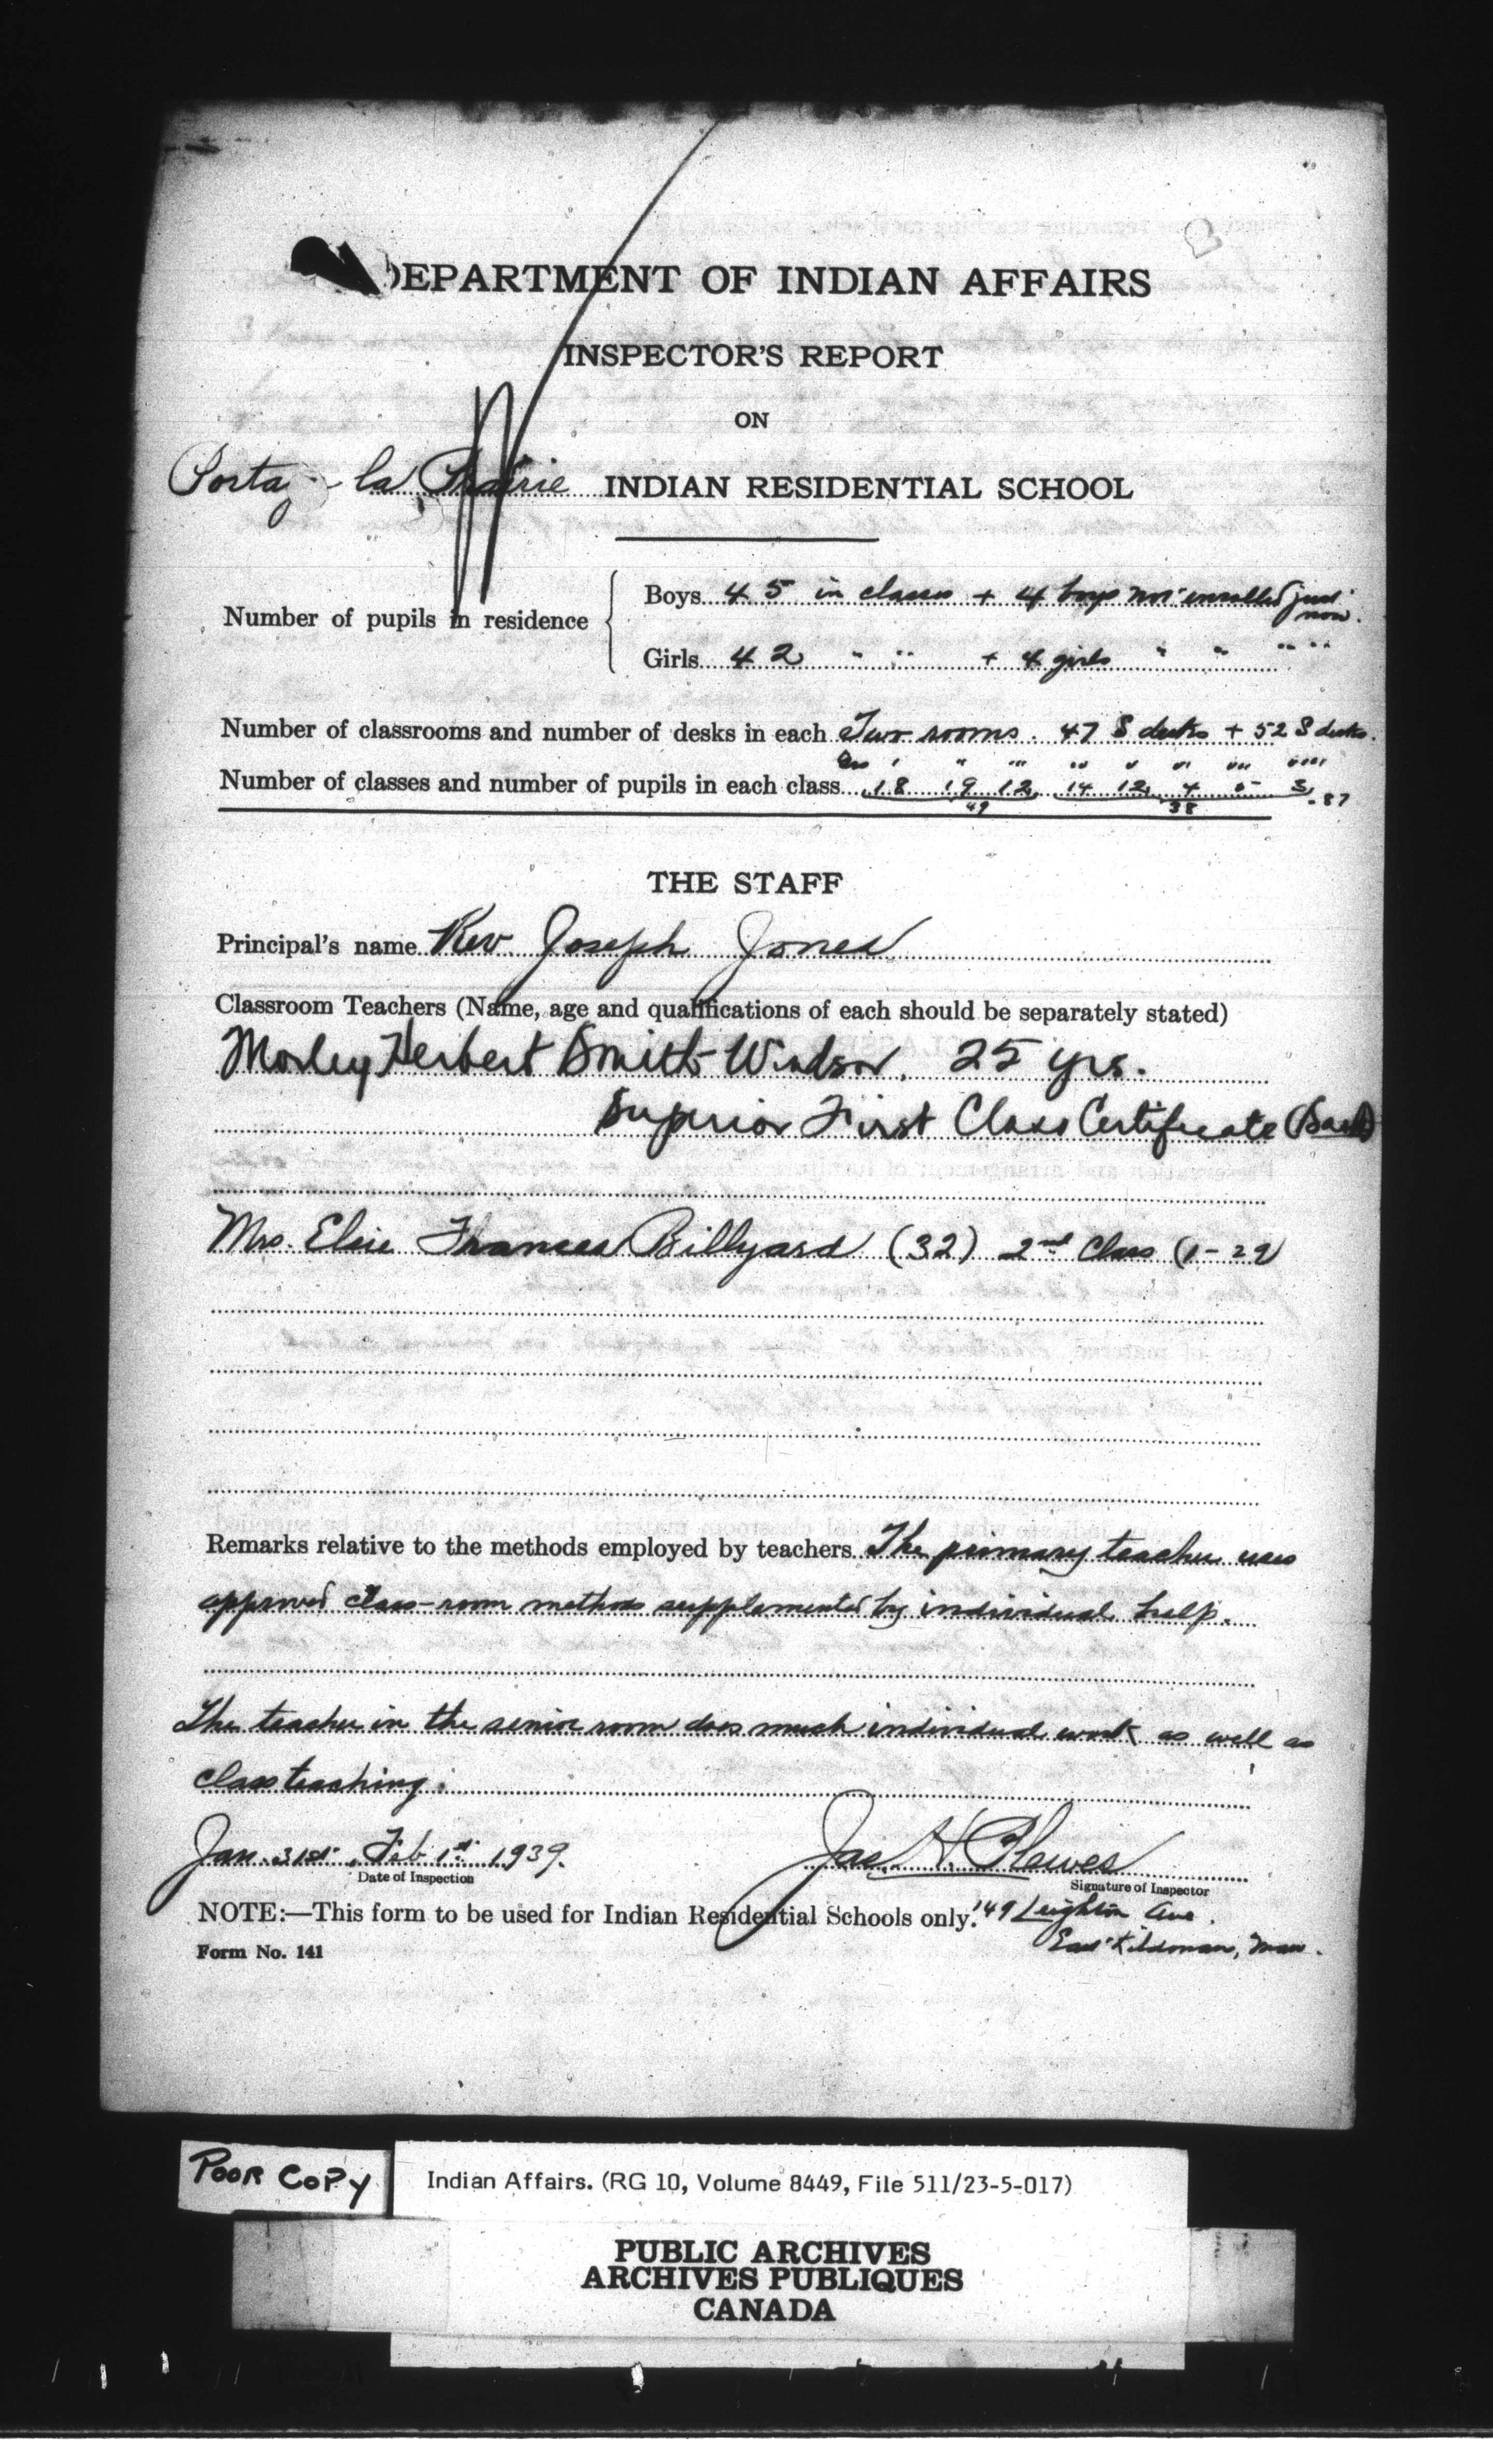 DEPARTMENT OF INDIAN AFFAIRS
INSPECTOR'S REPORT
ON
Portage la Prairie INDIAN RESIDENTIAL SCHOOL
Number of pupils in residence
Boys 45 in classes + 4 boys not enrolled just now.
Girls 42 " " + 4 girls " " " "
Number of classrooms and number of desks in each Two rooms. 47 S desks + 52 S desks.
Number of classes and number of pupils in each class 18 19 12 14 12 4 5 3 = 87
49 38
THE STAFF
Principal's name Rev. Joseph Jones
Classroom Teachers (Name, age and qualifications of each should be separately stated)
Morley Herbert Smith-Windsor. 25 yrs.
Superior First Class Certificate (Sask)
Mrs. Elsie Frances Billyard (32) 2nd Class (1-29)
Remarks relative to the methods employed by teachers The primary teacher uses
approved class-room methods supplemented by individual help.
The teacher in the senior room does much individual work as well as
class teaching.
Jan. 31st, Feb 1st 1939.
Date of Inspection
Jas. H. Plewes
Signature of Inspector
NOTE:—This form to be used for Indian Residential Schools only.
149 Leighton Ave.
East Kildonan, Man.
Form No. 141
POOR COPY
Indian Affairs. (RG 10, Volume 8449, File 511/23-5-017)
PUBLIC ARCHIVES
ARCHIVES PUBLIQUES
CANADA